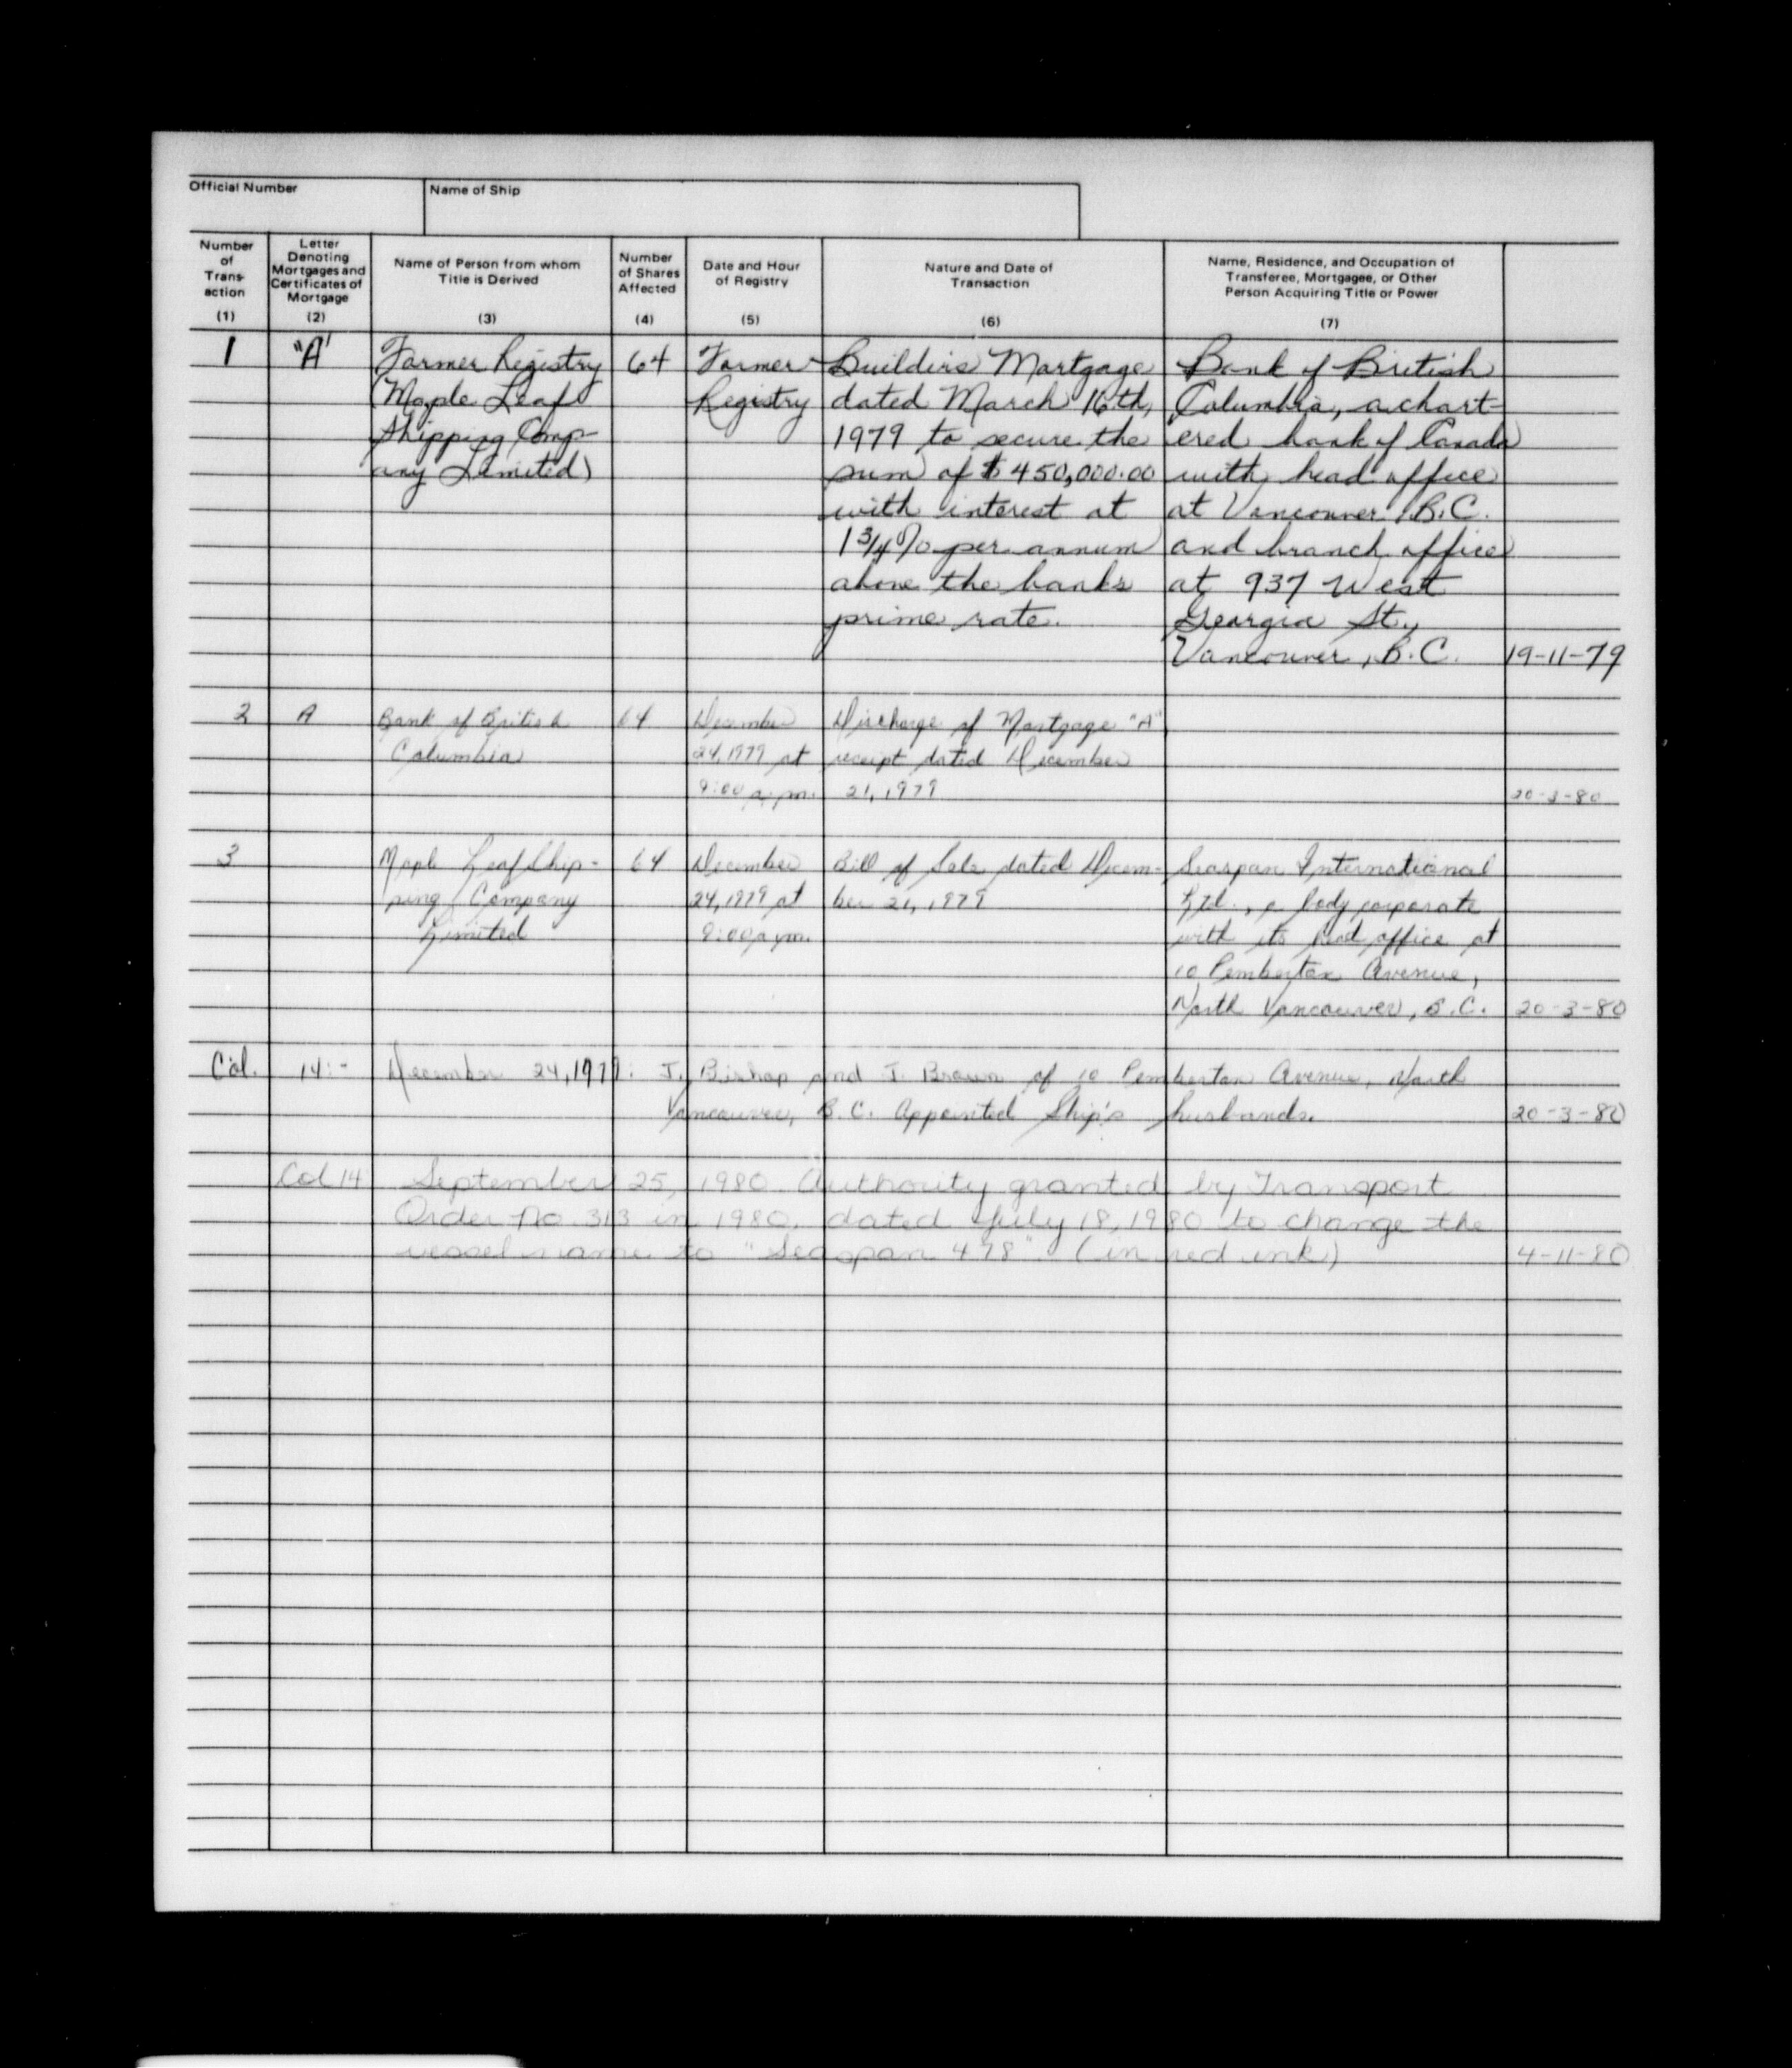 Official Number
Name of Ship
Number of Trans-action (1)
Letter Denoting Mortgages and Certificates of Mortgage (2)
Name of Person from whom Title is Derived (3)
Number of Shares Affected (4)
Date and Hour of Registry (5)
Nature and Date of Transaction (6)
Name, Residence, and Occupation of Transferee, Mortgagee, or Other Person Acquiring Title or Power (7)
1 "A" Former Registry 64 Former Builders Mortgage Bank of British
(Maple Leaf Registry dated March 16th, Columbia, a chart-
Shipping Comp- 1979 to secure the ered bank of Canada
any Limited) sum of $450,000.00 with head office
with interest at at Vancouver, B.C.
1 3/4 % per annum and branch office
above the banks at 937 West
prime rate. Georgia St.,
Vancouver, B.C. 19-11-79
2 A Bank of British 64 December Discharge of Mortgage "A"
Columbia 24, 1979 at receipt dated December
9:00 a.m. 21, 1979 20-3-80
3 Maple Leaf Ship- 64 December Bill of Sale dated Decem- Seaspan International
ping Company 24, 1979 at ber 21, 1979 Ltd., a body corporate
Limited 9:00 a.m. with its head office at
10 Pemberton Avenue,
North Vancouver, B.C. 20-3-80
Col. 14:- December 24, 1979: J. Bishop and J. Brown of 10 Pemberton Avenue, North
Vancouver, B.C. Appointed Ship's husbands. 20-3-80
Col 14 September 25, 1980 Authority granted by Transport
Order No. 313 in 1980, dated July 18, 1980 to change the
vessel name to "Seaspan 478". (in red ink) 4-11-80